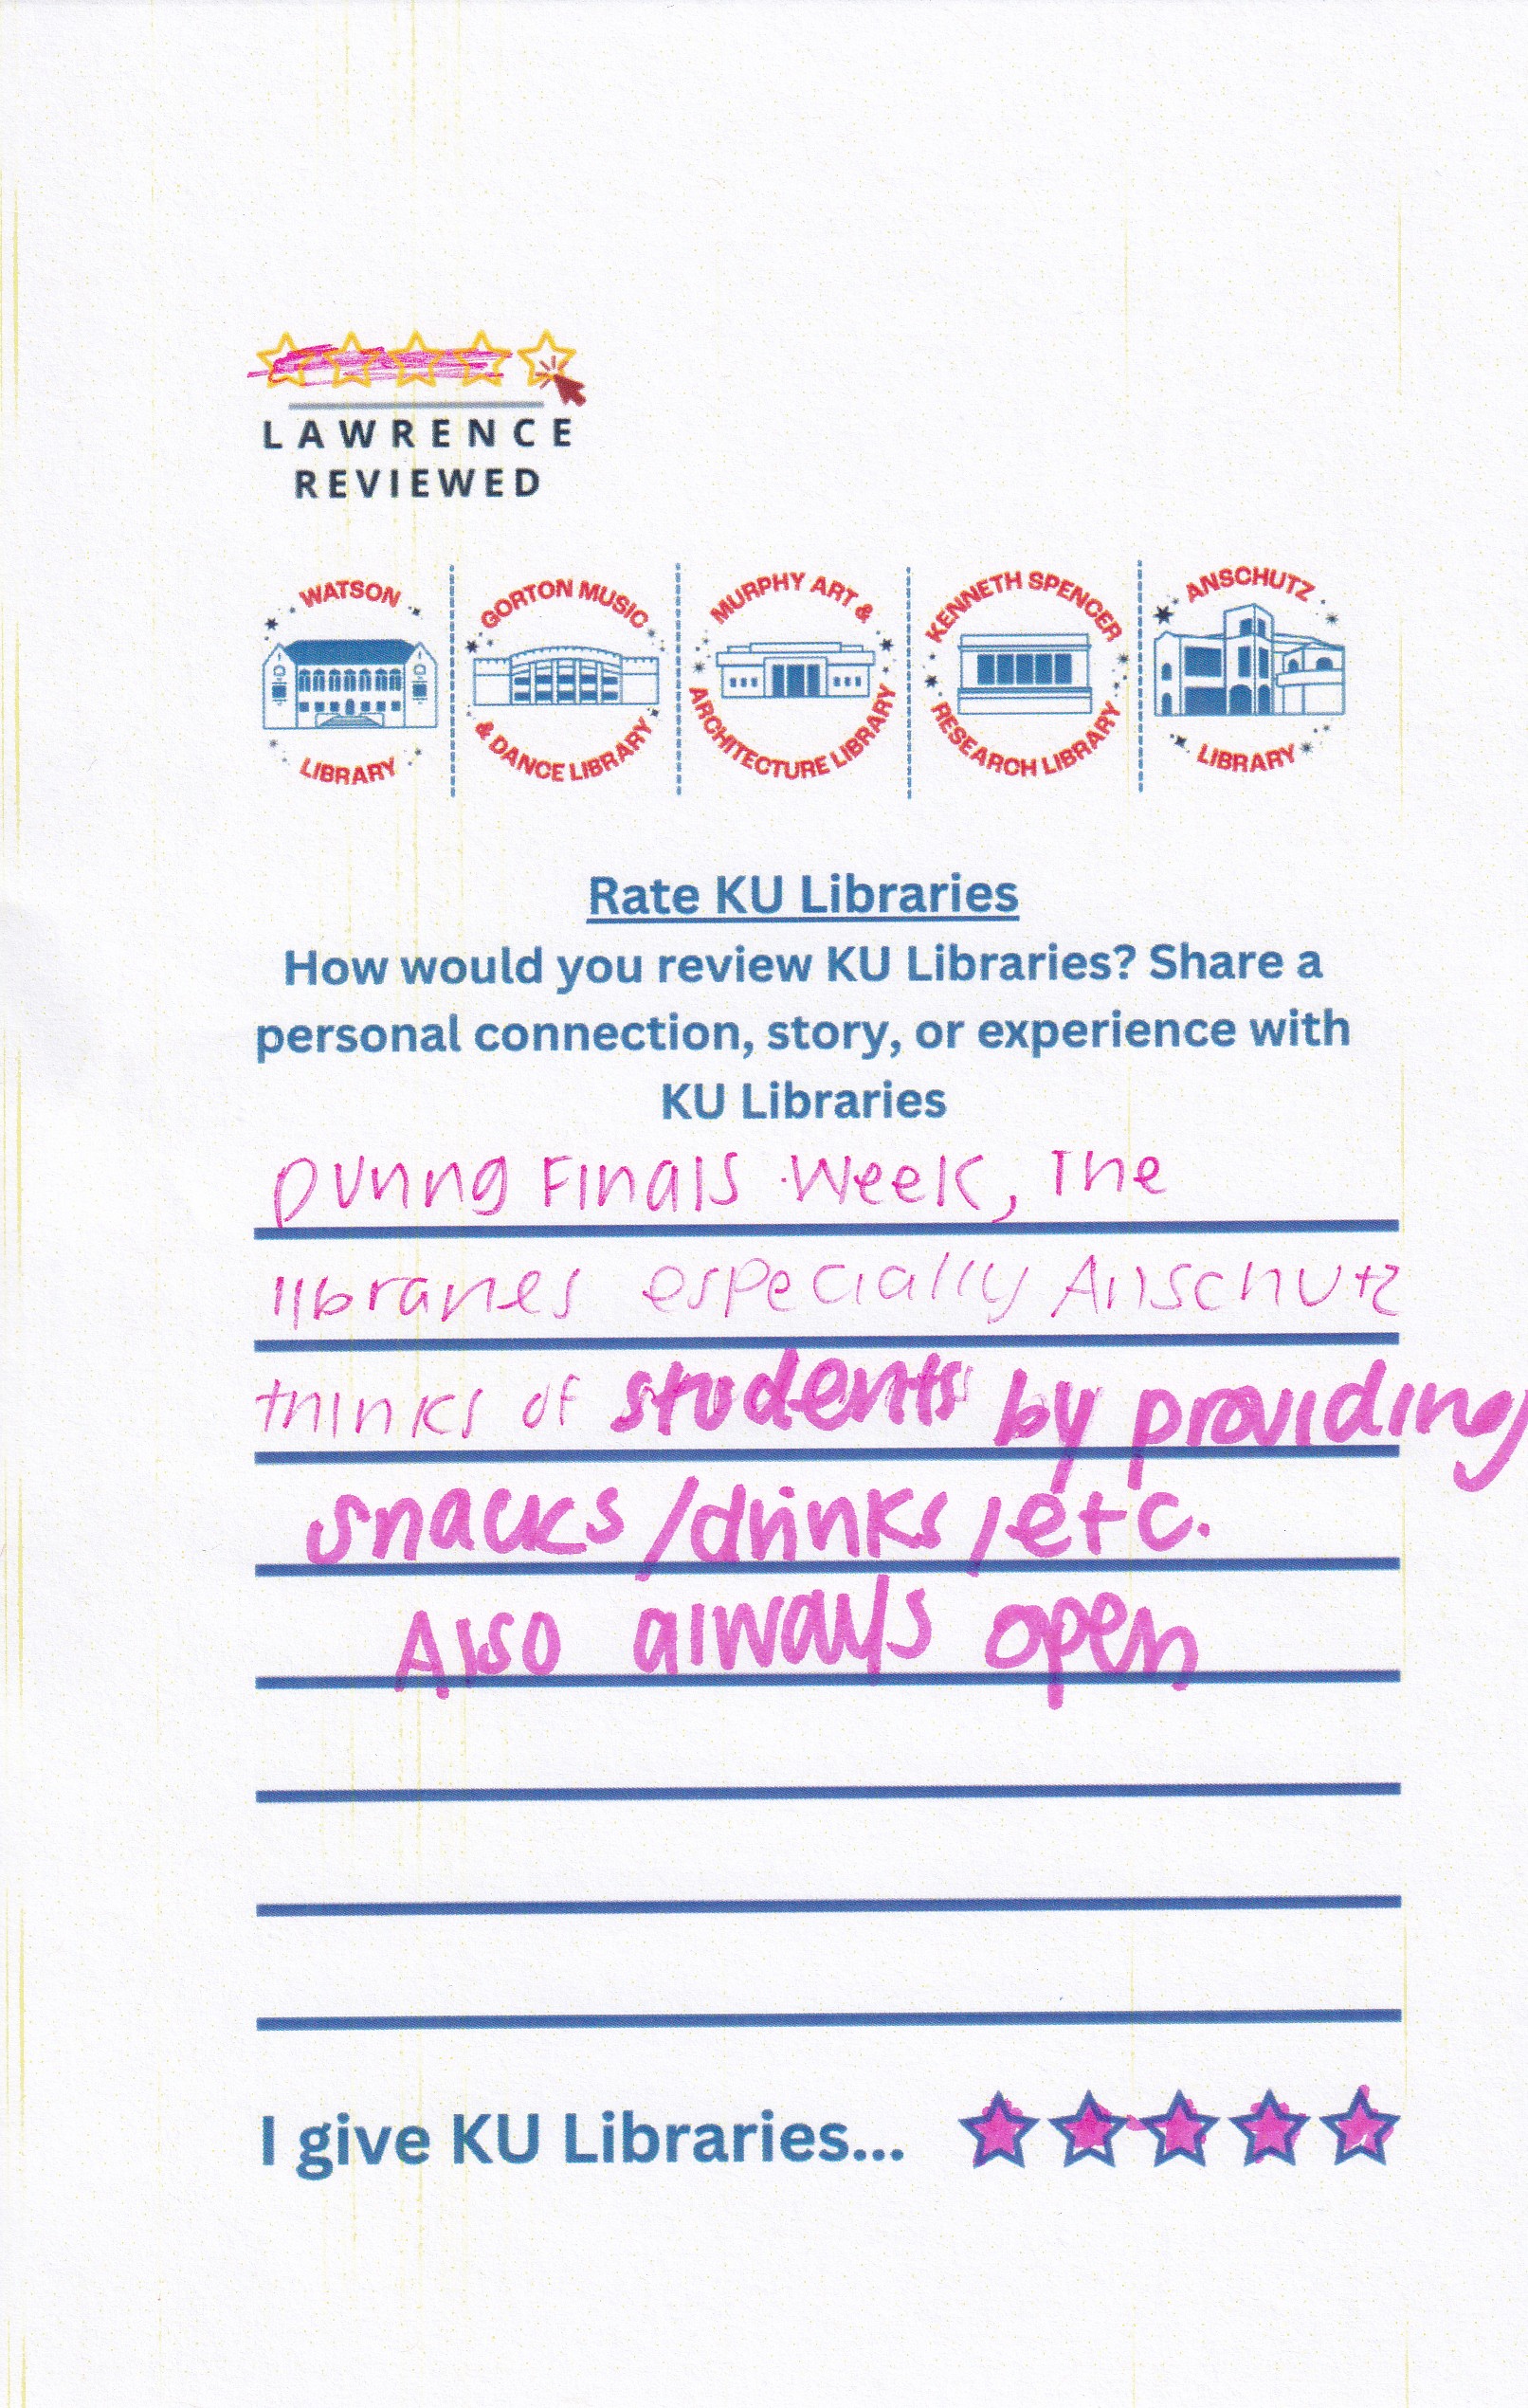 LAWRENCE
REVIEWED
WATSON
LIBRARY
GORTON MUSIC
& DANCE LIBRARY
MURPHY ART &
ARCHITECTURE LIBRARY
KENNETH SPENCER
RESEARCH LIBRARY
ANSCHUTZ
LIBRARY
Rate KU Libraries
How would you review KU Libraries? Share a
personal connection, story, or experience with
KU Libraries
During Finals Week, The
libraries especially Anschutz
thinks of students by providing
snacks/drinks/etc.
Also always open
I give KU Libraries...